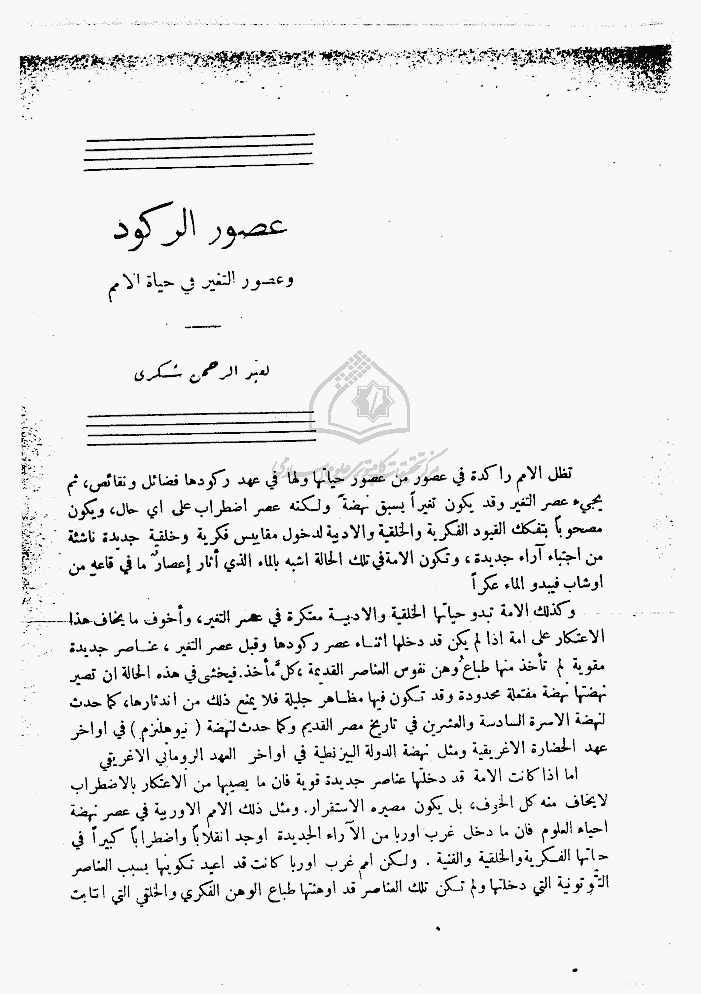 عصور الركود
وعصور التغير في حياة الامم
لعبد الرحمن شكرى
مركز تحقیقات کامپیوتری علوم اسلامی
تظل الامم راكدة في عصور من عصور حياتها ولها في عهد ركودها فضائل ونقائص، ثم
يجيء عصر التغير وقد يكون تغيراً يسبق نهضة ولكنه عصر اضطراب على اي حال، ويكون
مصحوباً بتفكك القيود الفكرية والخلقية والادبية لدخول مقاييس فكرية وخلقية جديدة ناشئة
من اجتباء آراء جديدة، وتكون الامة في تلك الحالة اشبه بالماء الذي أثار إعصار ما في قاعه من
اوشاب فيبدو الماء عكراً
وكذلك الامة تبدو حياتها الخلقية والادبية معتكرة في عصر التغير، وأخوف ما يخاف هذا
الاعتكار على امة اذا لم يكن قد دخلها اثناء عصر ركودها وقبل عصر التغير، عناصر جديدة
مقوية لم تأخذ منها طباع وهن نفوس العناصر القديمة، كل مأخذ. فيخشى في هذه الحالة ان تصير
نهضتها نهضة مفتعلة محدودة وقد تكون فيها مظاهر جليلة فلا يمنع ذلك من اندثارها، كما حدث
لنهضة الاسرة السادسة والعشرين في تاريخ مصر القديم وكما حدث لنهضة (نيوهلنزم) في اواخر
عهد الحضارة الاغريقية ومثل نهضة الدولة البيزنطية في اواخر العهد الروماني الاغريقي
اما اذا كانت الامة قد دخلتها عناصر جديدة قوية فان ما يصيبها من الاعتكار بالاضطراب
لا يخاف منه كل الخوف، بل يكون مصيره الاستقرار. ومثل ذلك الامم الاوربية في عصر نهضة
احياء العلوم فان ما دخل غرب اوربا من الآراء الجديدة اوجد انقلاباً واضطراباً كبيراً في
حياتها الفكرية والخلقية والفنية. ولكن امم غرب اوربا كانت قد اعيد تكوينها بسبب العناصر
التوتونية التي دخلتها ولم تكن تلك العناصر قد اوهنتها طباع الوهن الفكري والخلقي التي انتابت